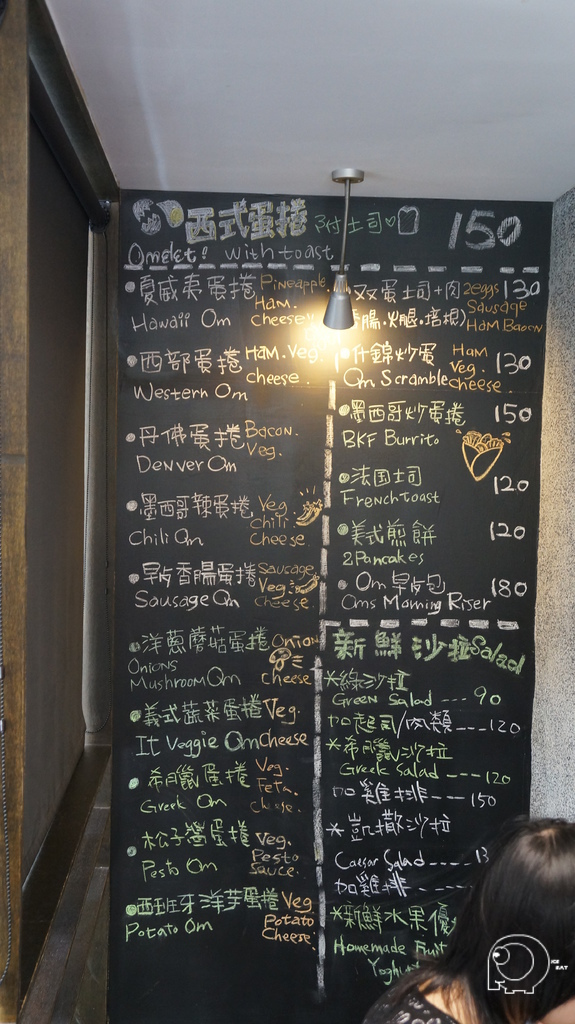 西式蛋捲 附土司♡ 150
Omelet! with toast
夏威夷蛋捲 Pineapple.
Hawaii Om Ham. Cheese
西部蛋捲 Ham. Veg.
Western Om cheese.
丹佛蛋捲 Bacon.
Denver Om Veg.
墨西哥辣蛋捲 Veg.
Chili Om Chili Cheese.
早午香腸蛋捲 Saucage
Sausage Om Veg. cheese.
洋蔥蘑菇蛋捲 Onion
Onions
Mushroom Om Cheese
義式蔬菜蛋捲 Veg.
It Veggie Om Cheese
希臘蛋捲 Veg
Greek Om Feta. cheese.
松子醬蛋捲 Veg.
Pesto Om Pesto Sauce.
西班牙洋芋蛋捲 Veg
Potato Om Potato Cheese.
双蛋土司+肉 2eggs 130
腸.火腿.培根) Sausage
Ham Bacon
什錦炒蛋 Ham 130
Om Scramble Veg. cheese.
墨西哥炒蛋捲 150
BKF Burrito
法国土司 120
French toast
美式煎餅 120
2 Pancakes
Om 早午包 180
Oms Morning Riser
新鮮沙拉 Salad
*綠沙拉
Green Salad --- 90
加起司/肉類 --- 120
*希臘沙拉
Greek Salad --- 120
加雞排 --- 150
*凱撒沙拉
Caesar Salad
加雞排 ---
*新鮮水果優
Homemade Fruit
ICE
EAT